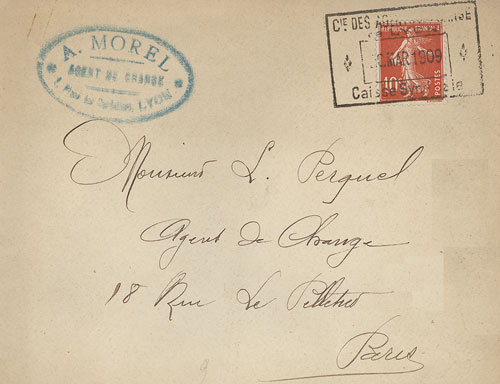 A. MOREL
AGENT DE CHANGE
LYON
CIE DES
MAR 1909
Caisse
10
POSTES
Monsieur L. Perquel
Agent de Change
18 Rue Le Pelletier
Paris